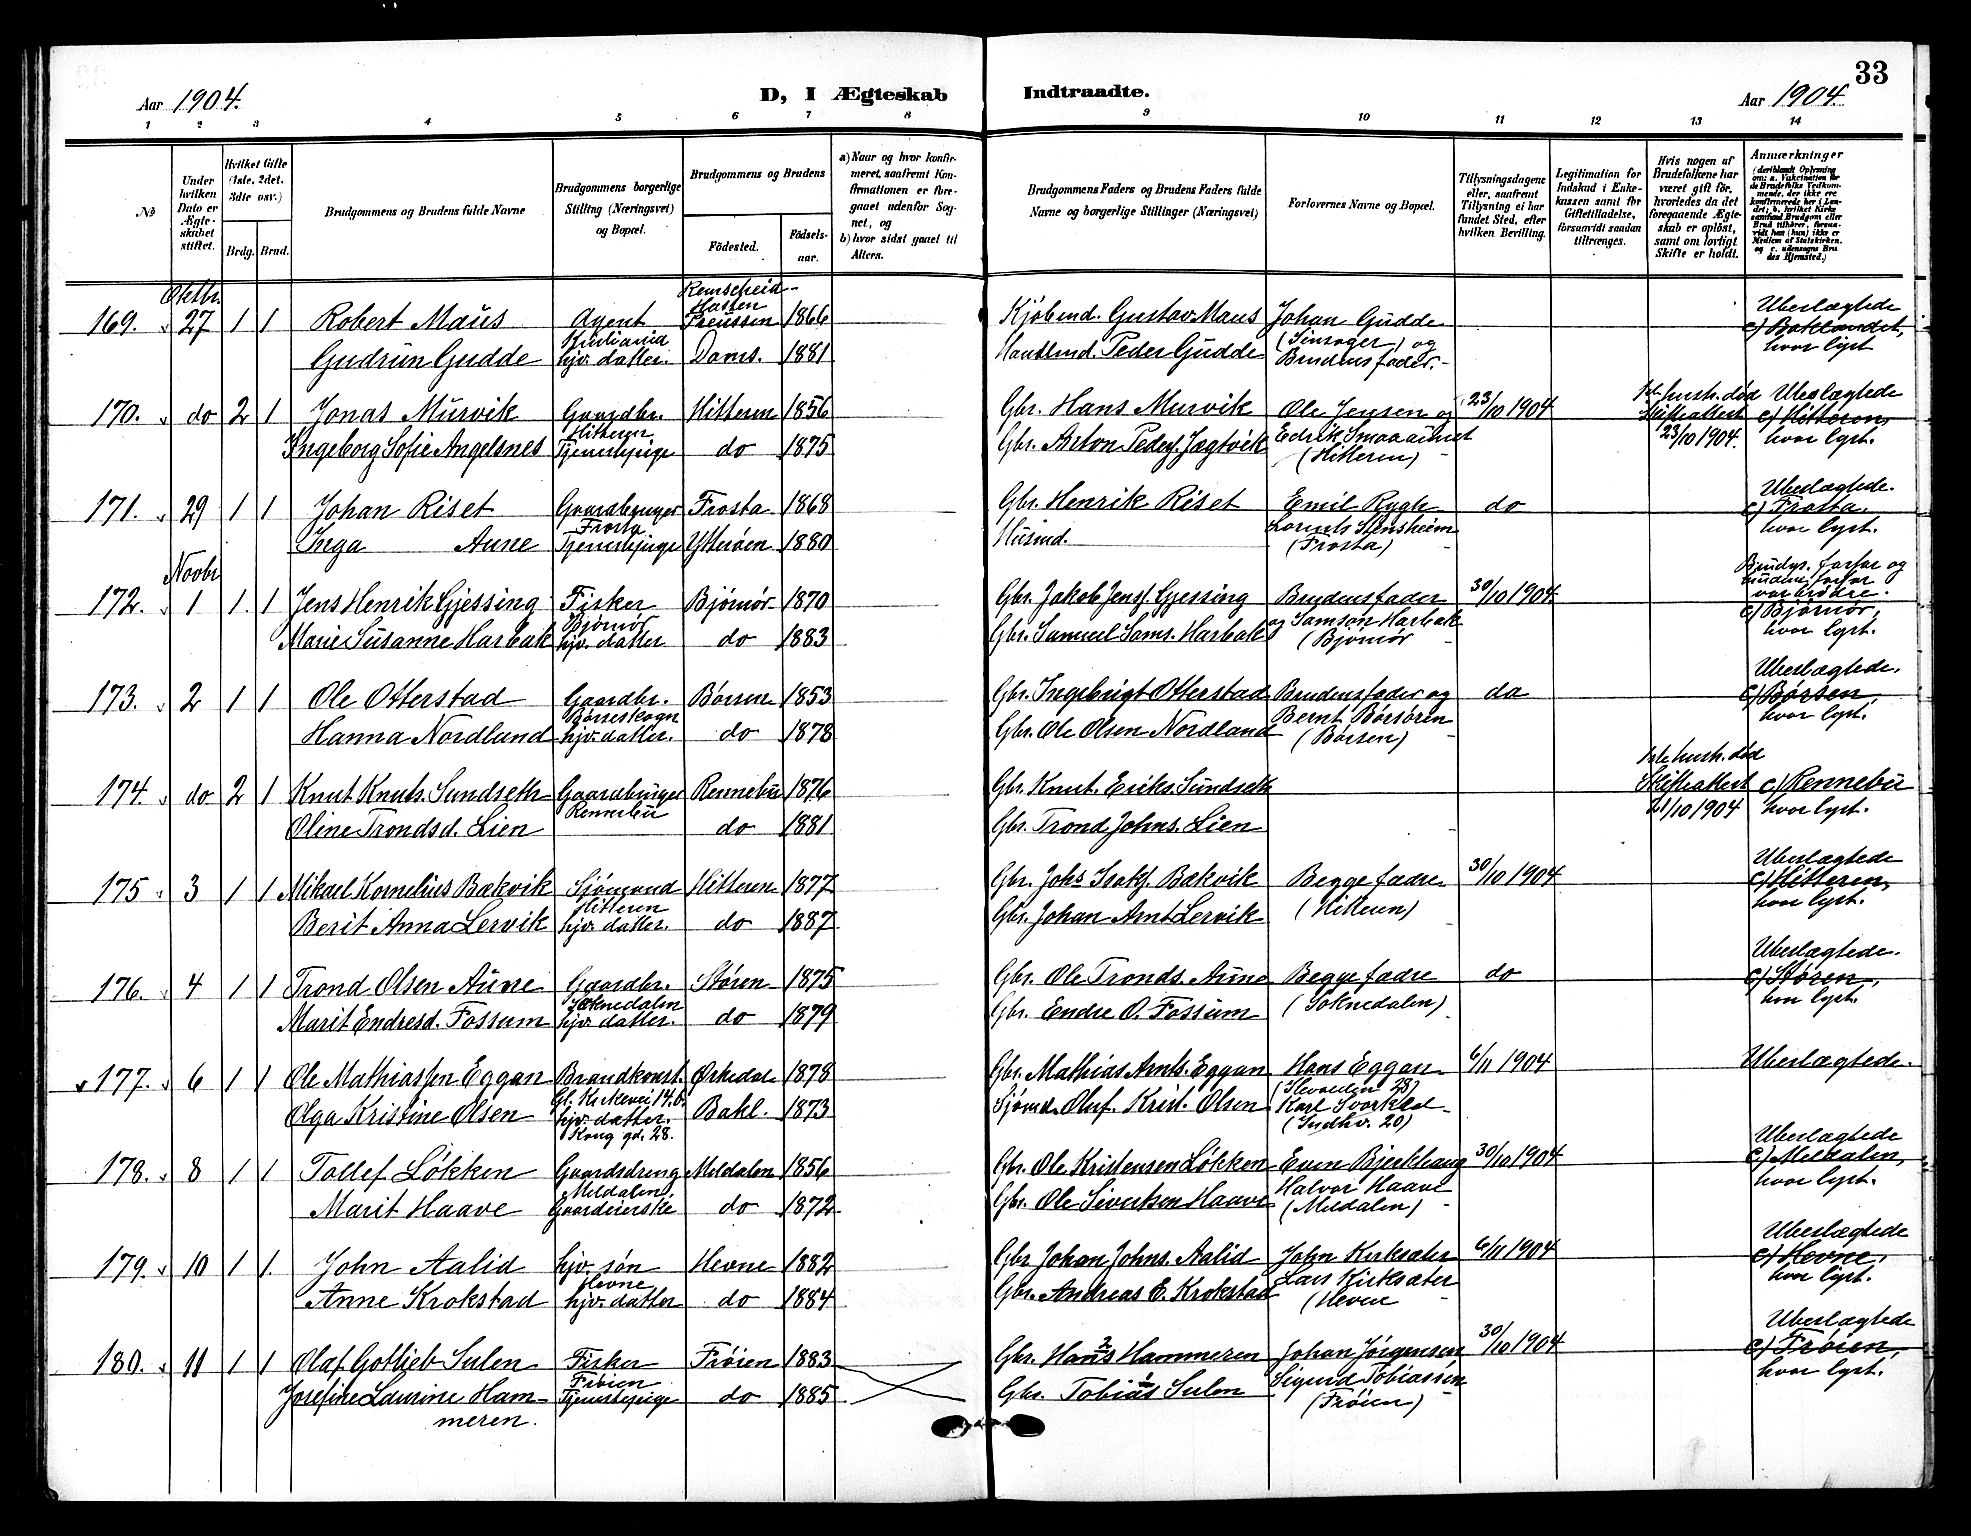 33
Aar 1904.
D, I Ægteskab Indtraadte.
Aar 1904.
1 2 3 4 5 6 7 8 9 10 11 12 13 14
No
Under hvilken Dato er Ægteskabet stiftet.
Hvilket Gifte (1ste, 2det, 3dte osv.)
Brdg. Brud.
Brudgommens og Brudens fulde Navne
Brudgommens borgerlige Stilling (Næringsvei) og Bopæl.
Brudgommens og Brudens
Fødested.
Fødselsaar.
a) Naar og hvor konfirmeret, saafremt Konfirmationen er foregaaet udenfor Sognet, og
b) hvor sidst gaaet til Alters.
Brudgommens Faders og Brudens Faders fulde Navne og borgerlige Stillinger (Næringsvei)
Forlovernes Navne og Bopæl.
Tillysningsdagene eller, saafremt Tillysning ei har fundet Sted, efter hvilken Bevilling.
Legitimation for Indskud i Enkekassen samt for Giftetilladelse, forsaavidt saadan tiltrænges.
Hvis nogen af Brudefolkene har været gift før, hvorledes da det foregaaende Ægteskab er opløst, samt om lovligt Skifte er holdt.
Anmærkninger
Oktbr.
169. 27 1 1 Robert Maus Agent Kristiania Remscheid Preussen 1866 Kjøbmd. Gustav Maus Johan Gudde Ubeslægtede
Gudrun Gudde hjv. datter. Doms. 1881 Handlmd. Peder Gudde og Brudens fader. c) Baklandet, hvor lyst
170. do 2 1 Jonas Murvik Gaardbr. Hitteren Hitteren 1856 Gbr. Hans Murvik Ole Jensen og 23/10 1904 1st. hustr. død Skifteattest 23/10 1904. Ubeslægtede
Ingeborg Sofie Angelsnes Tjenestepige do 1875 Gbr. Anton Peders. Jægtvik (Hitteren) c) Hitteren, hvor lyst.
171. 29 1 1 Johan Riset Gaardbruger Frosta Frosta 1868 Gbr. Henrik Riset Emil Rygh do Ubeslægtede.
Inga Aune Tjenestepige Ytterøen 1880 Husmd. (Frosta) c) Frosta, hvor lyst.
Novbr
172. 1 1. 1 Jens Henrik Gjessing Fisker Bjørnør Bjørnør 1870 Gbr. Jakob Jens. Gjessing Brudens fader 30/10 1904 Brudgs. farfar og brudens farfar var brødre.
Marie Susanne Harbak hjv. datter do 1883 Gbr. Samuel Sams. Harbak og Samson Harbak (Bjørnør c) Bjørnør, hvor lyst.
173. 2 1 1 Ole Otterstad Gaardbr. Børseskogn Børsen 1853 Gbr. Ingebrigt Otterstad Brudens fader og do Ubeslægtede.
Hanna Nordlund hjv. datter. do 1878 Gbr. Ole Olsen Nordland Bernt Børsøren (Børsen) c) Børsen, hvor lyst.
174. do 2 1 Knut Knuts. Sundseth Gaardbruger Rennebu Rennebu 1876 Gbr. Knut Eriks. Sundseth 1ste hustr. død Skifteattest 21/10 1904 c) Rennebu
Oline Trondsd. Lien do 1881 Gbr. Trond Johns. Lien hvor lyst.
175 3 1 1 Mikael Kornelius Bækvik Sjømand Hitteren Hitteren 1877 Gbr. Johs Isaks. Bækvik Begge fædre 30/10 1904 Ubeslægtede
Berit Anna Lervik hjv. datter. do 1887 Gbr. Johan Arnt Lervik (Hitteren) c) Hitteren, hvor lyst.
176. 4 1 1 Trond Olsen Aune Gaardbr. Soknedalen Støren 1875 Gbr. Ole Tronds. Aune Begge fædre do Ubeslægtede.
Marit Endresd. Fossum hjv. datter. do 1879 Gbr. Endre O. Fossum (Soknedalen) c) Støren, hvor lyst.
177. 6 1 1 Ole Mathiassen Eggan Brandkonst. Gl. Kirkevei 14.b. Ørkedal 1878 Gbr. Mathias Arnts. Eggan Hans Eggan 6/11 1904 Ubeslægtede.
Olga Kristine Olsen hjv. datter. Kong. gd. 28. Bakl. 1873 Sjømd. Oluf Krist. Olsen Karl Svorkød (Indhv. 20)
178. 8 1 1 Tollef Løkken Gaardsdreng Meldalen, Meldalen 1856 Gbr. Ole Kristensen Løkken Even Bjerkhaug 30/10 1904 Ubeslægtede
Marit Haave Gaardeierske do 1872 Gbr. Ole Sivertsen Haave Halvor Haave (Meldalen) c) Meldalen, hvor lyst.
179. 10 1 1. John Aalid hjv. søn Hevne Hevne 1882 Gbr Johan Johns. Aalid John Kirksæter 6/11 1904 Ubeslægtede
Anne Krokstad hjv. datter do 1884 Gbr. Andreas E. Krokstad Lars Kirksæter (Heven c) Hevne, hvor lyst.
180. 11 1 1 Olaf Gotlieb Sulen Fisker Frøien Frøien 1883 Gbr. Hans Hammeren Johan Jørgensen 30/10 1904 Ubeslægtede
Josefine Laurine Hammeren. Tjenestepige do 1885 Gbr. Tobias Sulen Sigurd Tobiassen (Frøien) c) Frøien, hvor lyst.